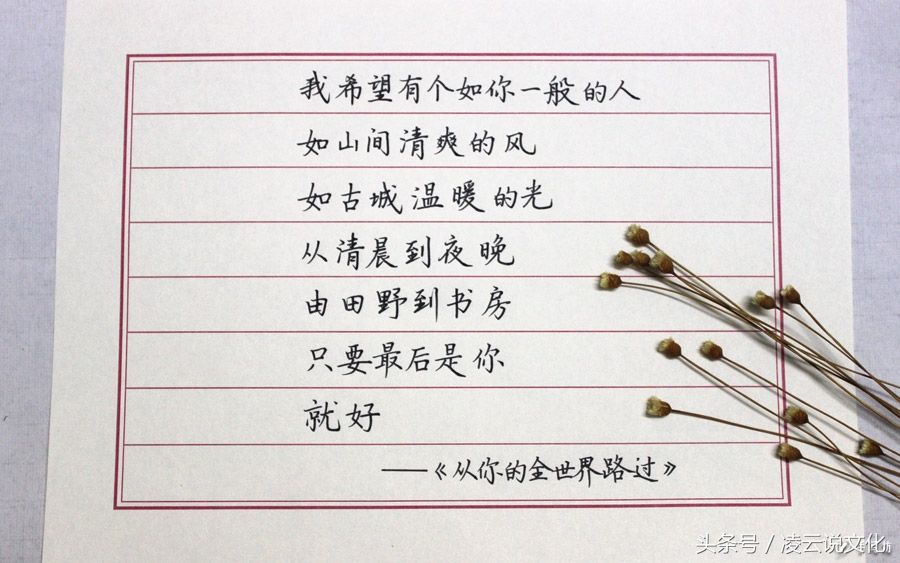 我希望有个如你一般的人
如山间清爽的风
如古城温暖的光
从清晨到夜晚
由田野到书房
只要最后是你
就好
——《从你的全世界路过》
头条号/凌云说文化